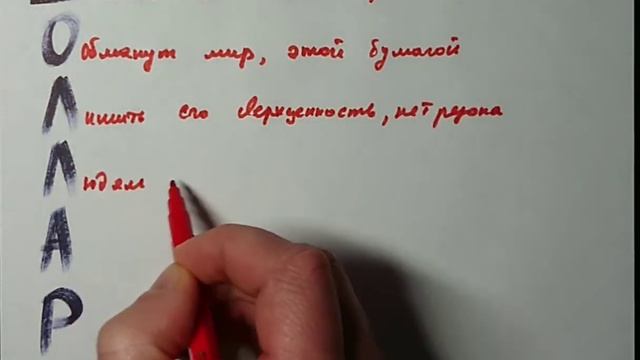 Обманут мир, этой бумагой
Лишить его ценность, нет резона
Людям
А
Р